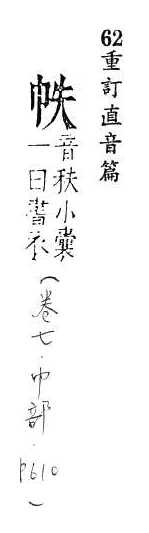 62重訂直音篇
帙
音秩小囊
一曰書衣
(卷七·巾部·P610)